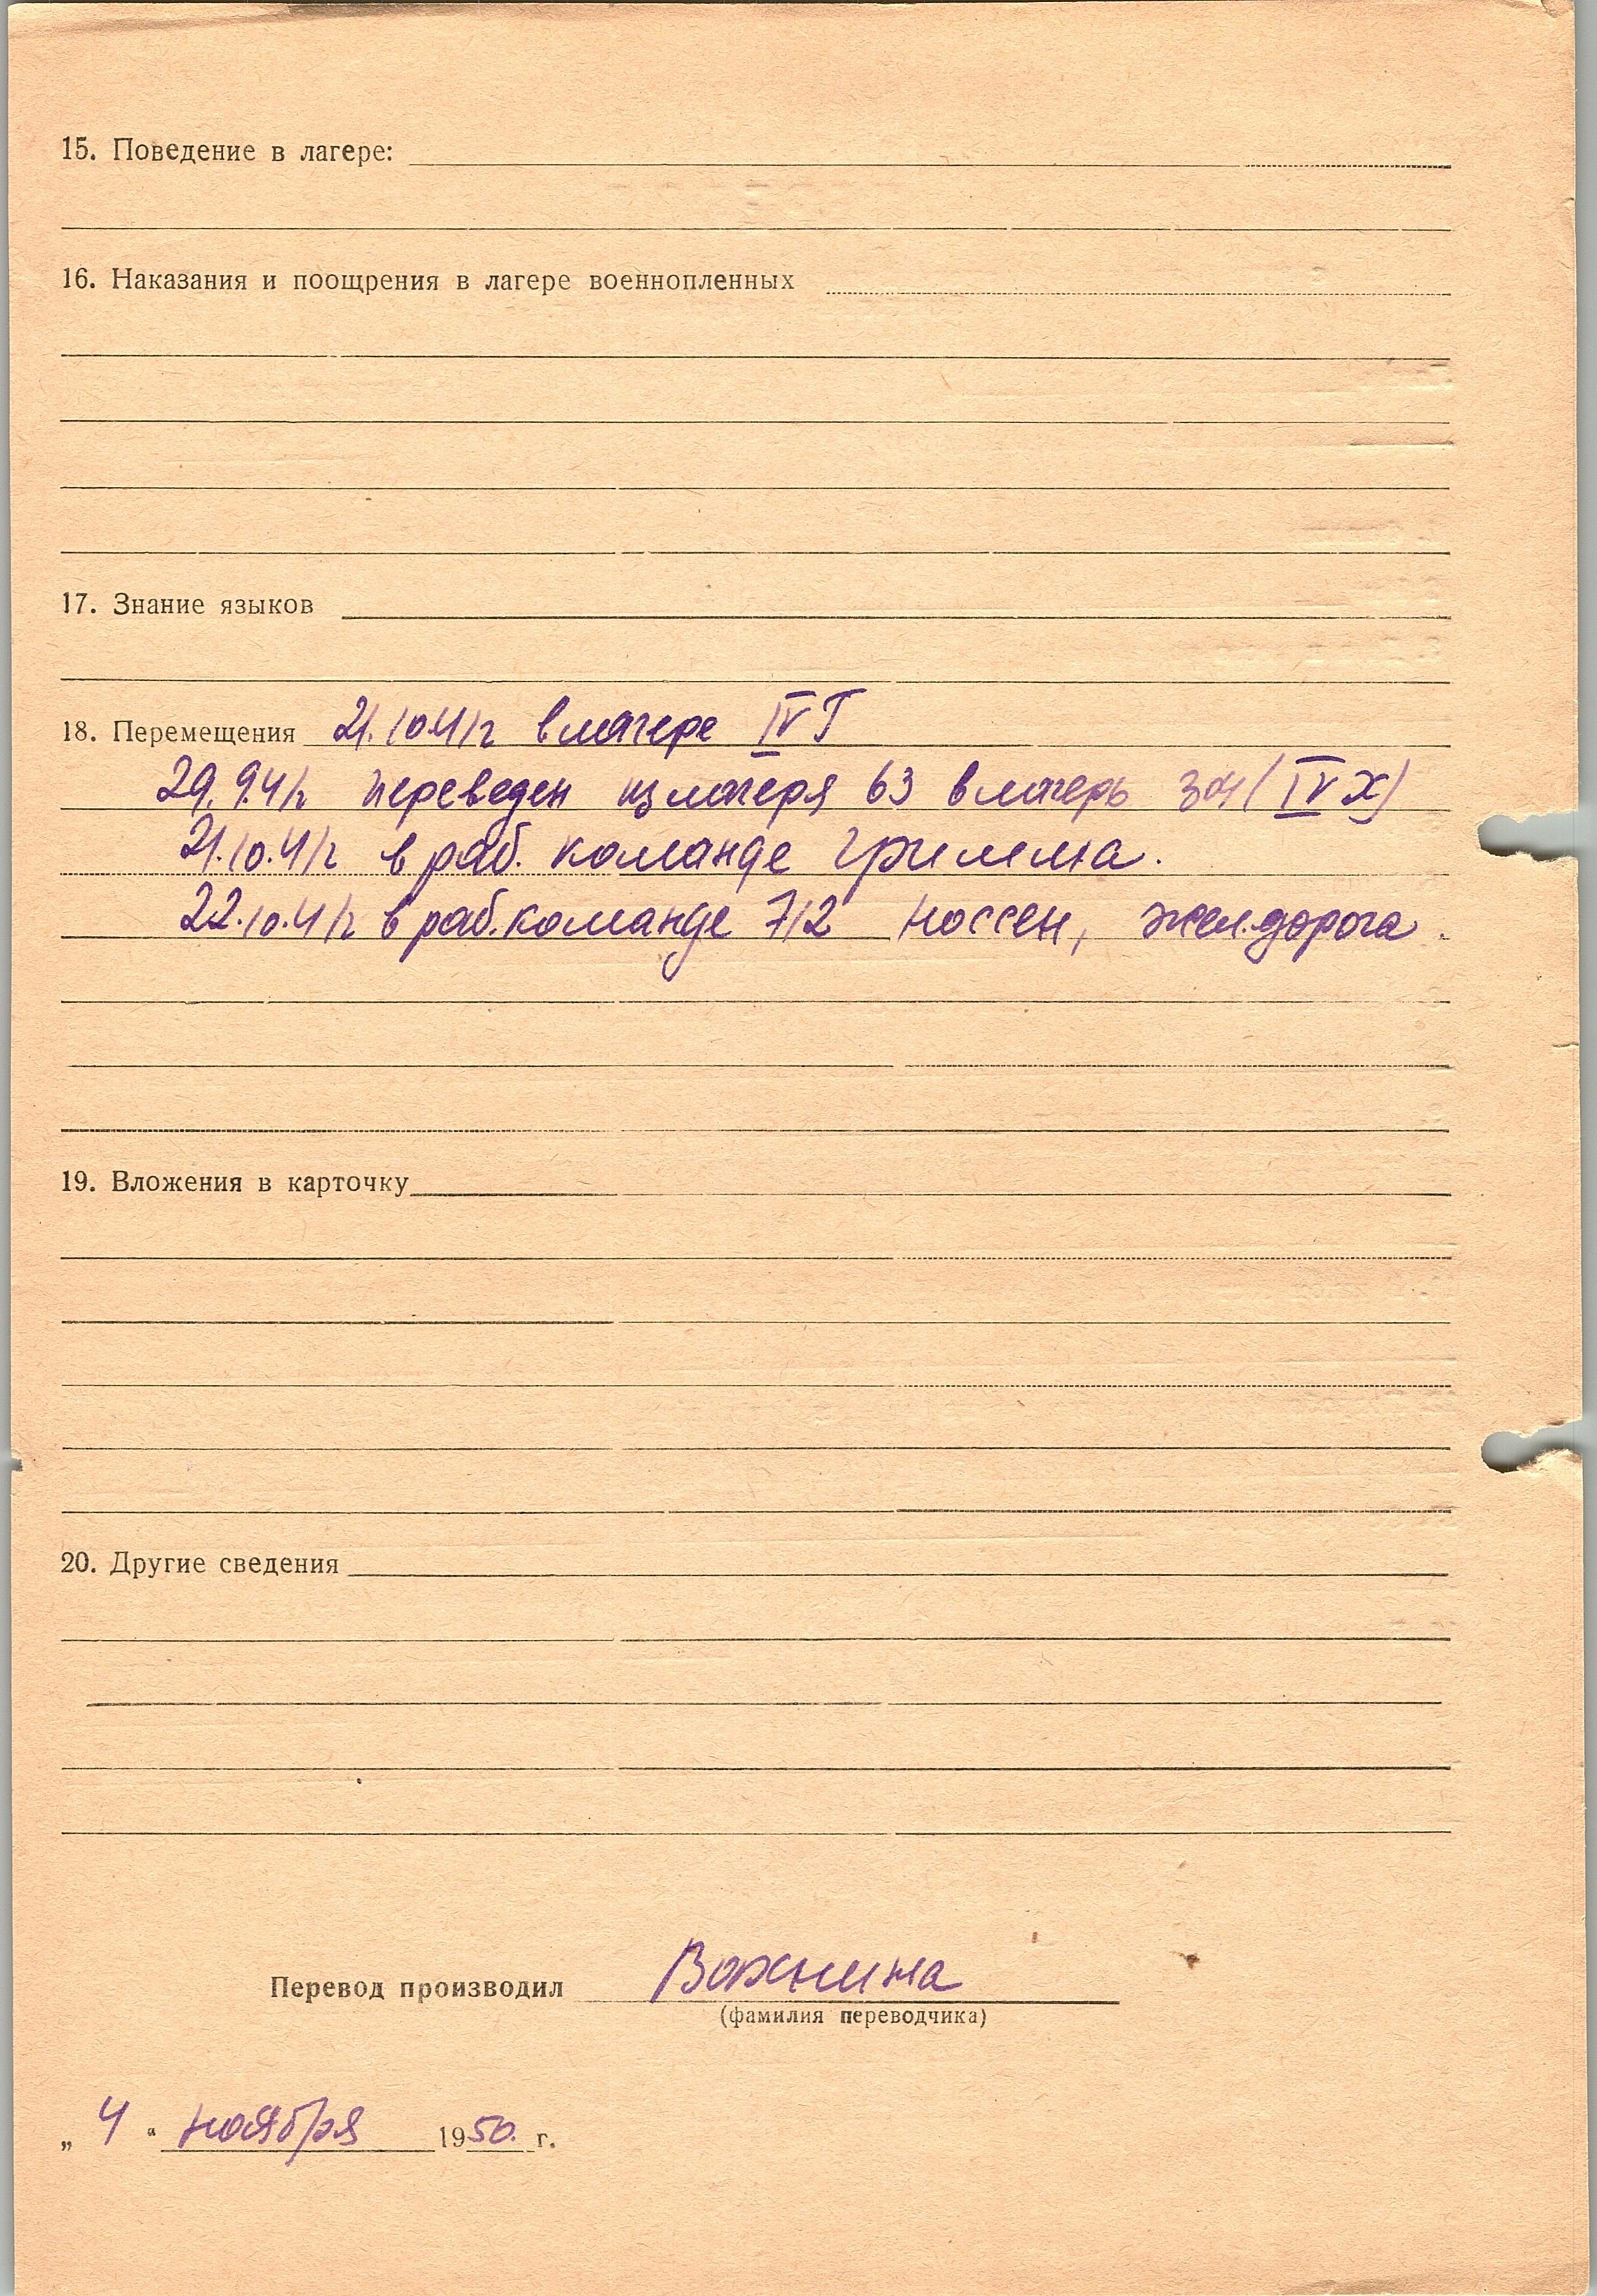 15. Поведение в лагере:
16. Наказания и поощрения в лагере военнопленных
17. Знание языков
18. Перемещения 21.10.41г в лагере IV Г
29.9.41г переведен из лагеря 63 в лагерь 304 (IV Х)
21.10.41г в раб. команде Гримма.
22.10.41г в раб. команде 712 Носсен, жел. дорога.
19. Вложения в карточку
20. Другие сведения
Перевод производил Вожнина
(фамилия переводчика)
„ 4 “ ноября 1950. г.